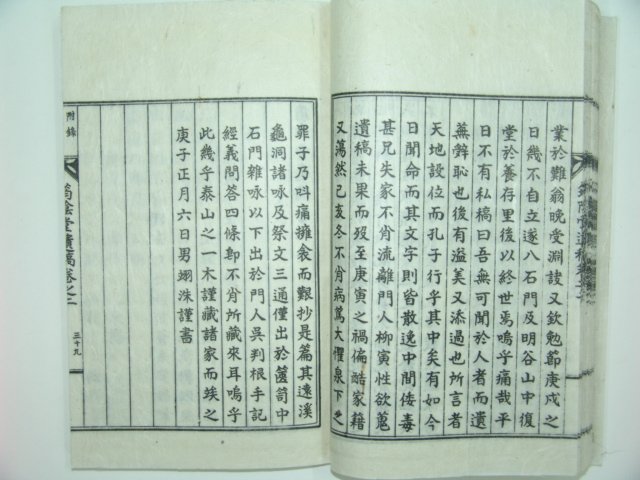 業於難翁晚受淵諄又欽勉節庚戍之
日幾不自立遂入石門及明谷山中復
堂於養存里後以終世焉嗚乎痛哉平
日不有私稿曰吾無可聞於人者而遺
蕪辭恥也後有溢美又添過也所言者
天地設位而孔子行乎其中矣有如今
日聞命而其文字則皆散逸中間倭毒
甚兄失家不肖流離門人柳寅性欲蒐
遺稿未果而歿至庚寅之禍偏酷家籍
又蕩然已亥冬不肖病篤大懼泉下之
罪子乃呌痛擁衾而艱抄是篇其遠溪
龜洞諸咏及祭文三通僅出於篋笥中
石門雜咏以下出於門人吳判根手記
經義問答四條卽不肖所藏來耳嗚乎
此幾乎泰山之一木謹藏諸家而竢之
庚子正月六日男翊洙謹書
附錄
筠陰堂遺稿卷之二
三十九